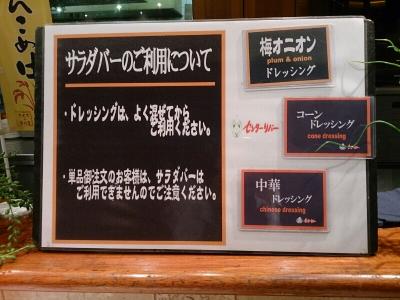 サラダバーのご利用について
・ドレッシングは、よく混ぜてから
ご利用ください。
・単品御注文のお客様は、サラダバーは
ご利用できませんのでご注意ください。
梅オニオン
plum & onion
ドレッシング
センターリバー
コーン
ドレッシング
cone dressing
中華
ドレッシング
chinese dressing